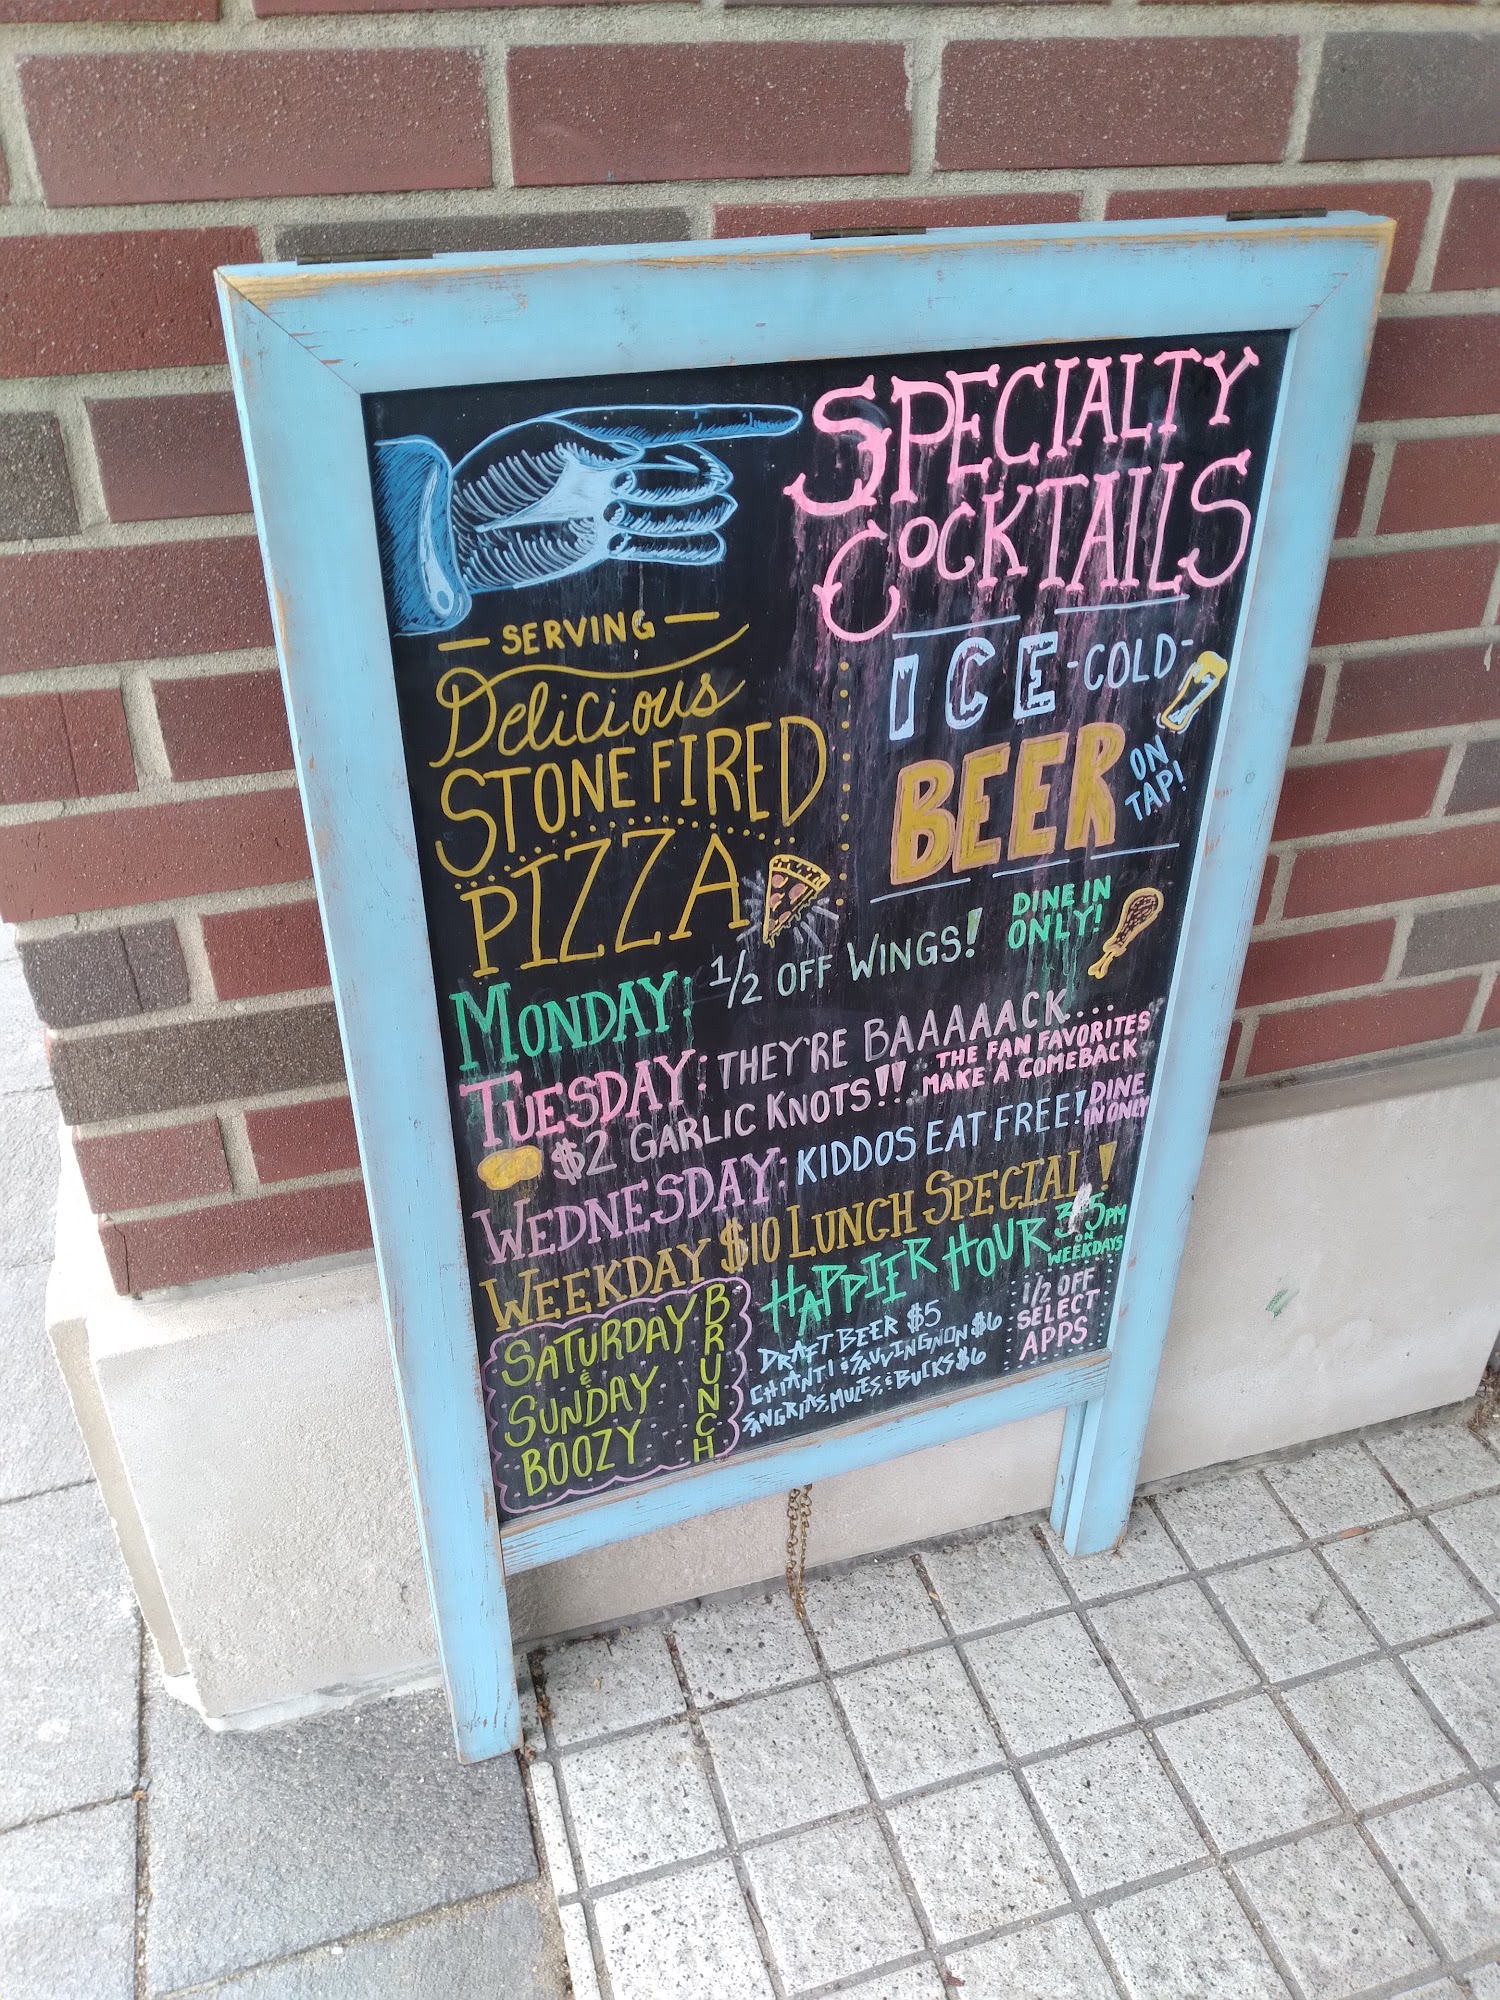 SPECIALTY
COCKTAILS
— SERVING —
Delicious
STONE FIRED
PIZZA
ICE -COLD-
BEER
ON
TAP!
MONDAY: 1/2 OFF WINGS!
DINE IN
ONLY!
TUESDAY: THEY'RE BAAAAACK...
$2 GARLIC KNOTS!!
THE FAN FAVORITES
MAKE A COMEBACK
WEDNESDAY: KIDDOS EAT FREE!
DINE
IN ONLY
WEEKDAY $10 LUNCH SPECIAL!
HAPPIER HOUR
3-5PM
ON
WEEKDAYS
DRAFT BEER $5
CHIANTI & SAUVINGNON $6
SANGRIAS, MULES, & BUCKS $6
1/2 OFF
SELECT
APPS
SATURDAY
&
SUNDAY
BOOZY
BRUNCH